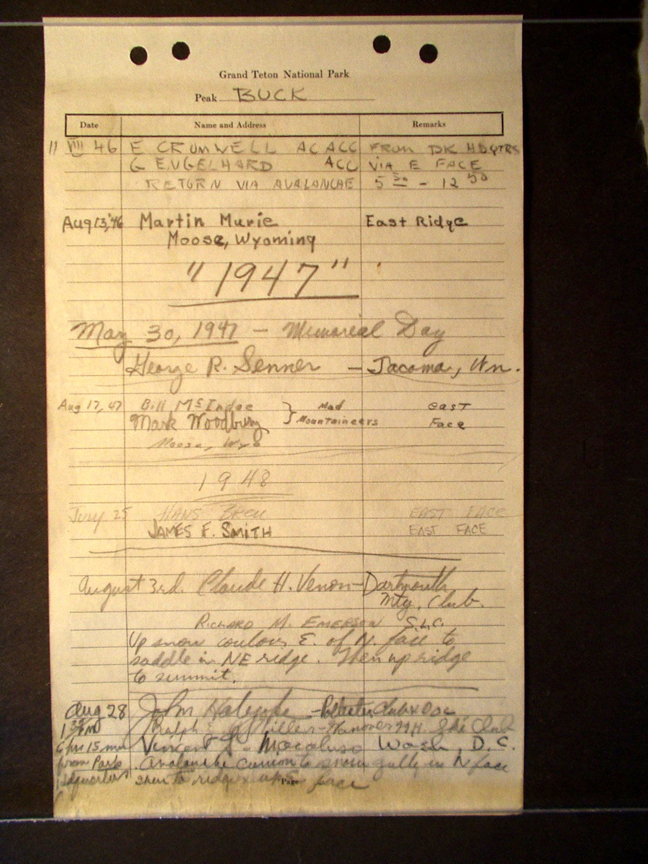 Grand Teton National Park
Peak BUCK
Date Name and Address Remarks
11 VIII 46 E CROMWELL ACACC FROM PK HDQTRS
G ENGELHARD ACC VIA E FACE
RETURN VIA AVALANCHE 5 00 - 12 50
Aug 13, '46 Martin Murie East Ridge
Moose, Wyoming
"1947"
May 30, 1947 - Memorial Day
George R. Senner - Tacoma, Wn.
Aug 17, 47 Bill McIndoe } Mad east
Mark Woodbury Mountaineers Face
Moose, Wyo
1948
July 25 HANS EAST FACE
JAMES F. SMITH EAST FACE
August 3rd. Claude H. - Dartmouth
Mtg. Club.
RICHARD M. EMERSON S.L.C.
Up snow couloir E. of N. face to
saddle in NE ridge. Then up ridge
to summit.
Aug 28 John
Ralph Hanover NH. Ski Club
6 hrs 15 min Vincent Wash, D.C.
from Park Avalanche canyon to snow gully in N face
Hdquarters to ridge face
Page